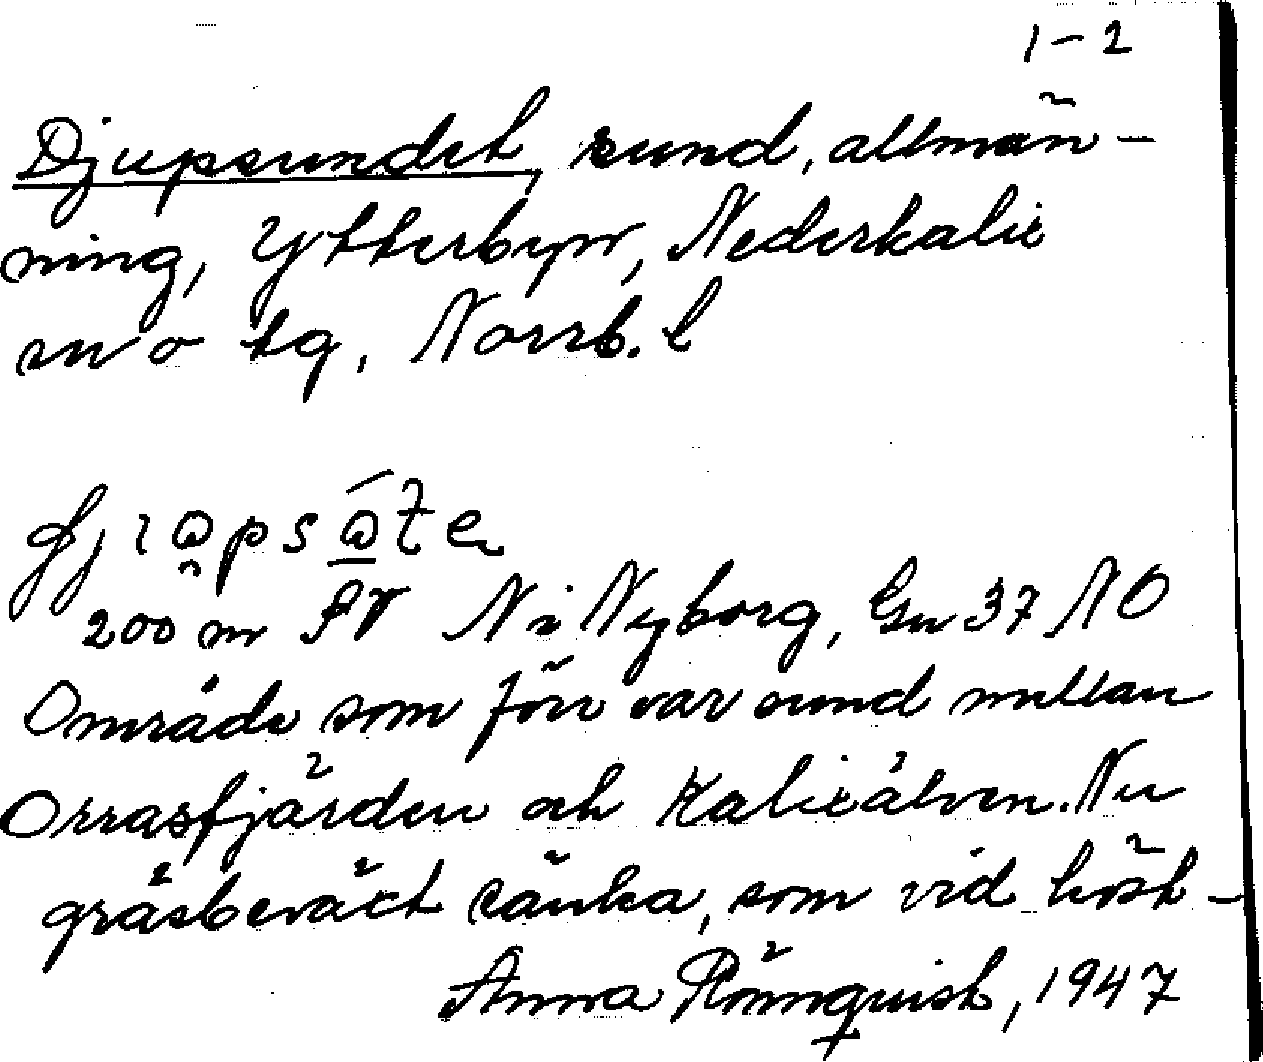 1-2
Djupsundet, sund, allmän-
ning, Ytterbyn, Nederkalix
sn o tg, Norrb. l
200 m N i Nyborg, Gn 37 NO
Område som förr var sund mellan
Orrasfjärden och Kalixälven. Nu
gräsbeväxt sänka, som vid höst-
Anna Rönnquist, 1947